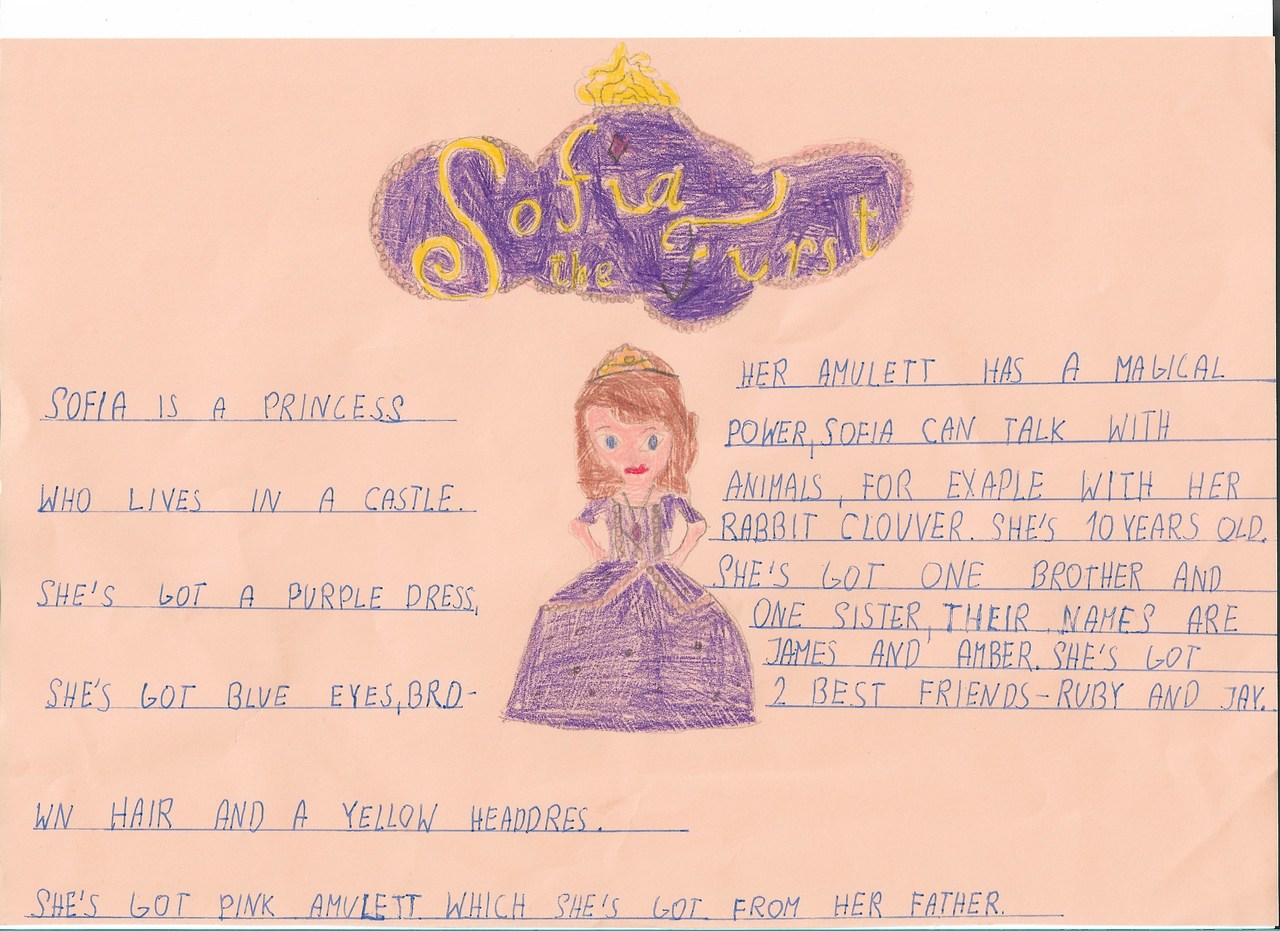 Sofia
the First
SOFIA IS A PRINCESS
WHO LIVES IN A CASTLE.
SHE'S GOT A PURPLE DRESS,
SHE'S GOT BLUE EYES, BRO-
WN HAIR AND A YELLOW HEADDRES.
SHE'S GOT PINK AMULETT WHICH SHE'S GOT FROM HER FATHER.
HER AMULETT HAS A MAGICAL
POWER, SOFIA CAN TALK WITH
ANIMALS, FOR EXAPLE WITH HER
RABBIT CLOUVER. SHE'S 10 YEARS OLD.
SHE'S GOT ONE BROTHER AND
ONE SISTER, THEIR NAMES ARE
JAMES AND AMBER. SHE'S GOT
2 BEST FRIENDS-RUBY AND JAY.